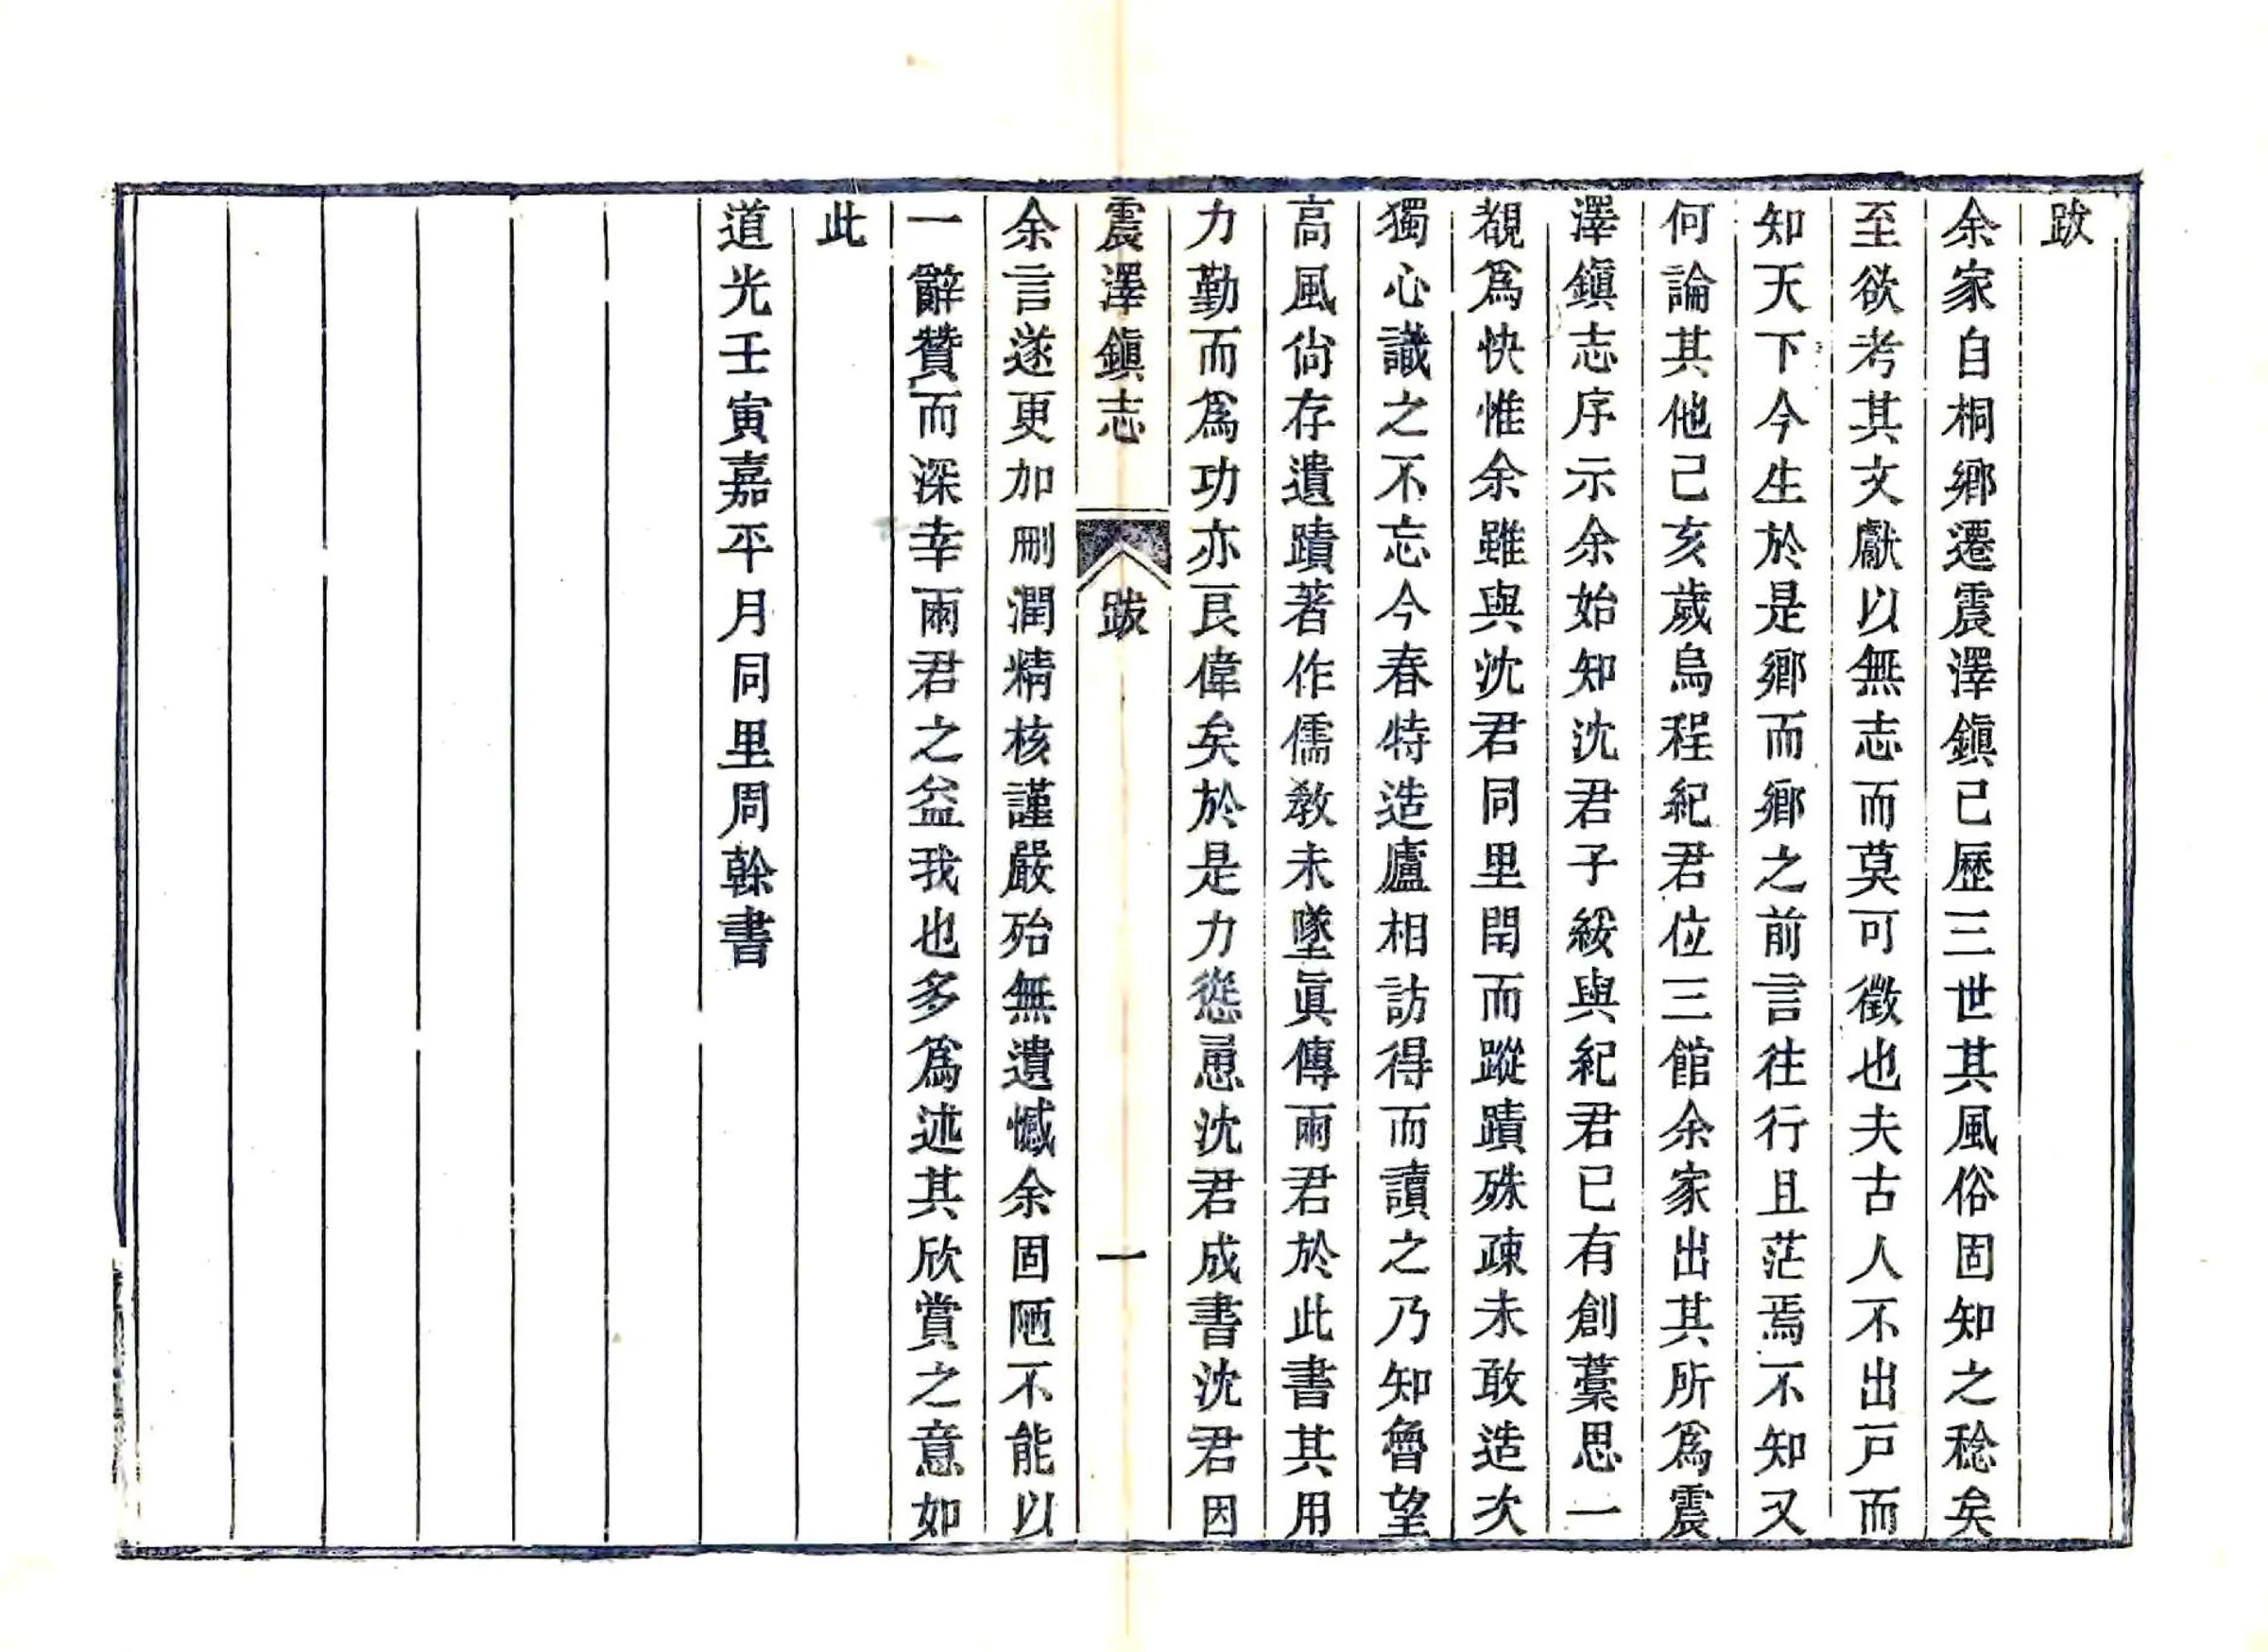 跋
余家自桐鄉遷震澤鎭已歷三世其風俗固知之稔矣
至欲考其文獻以無志而莫可徵也夫古人不出戸而
知天下今生於是鄉而鄉之前言往行且茫焉不知又
何論其他己亥歲烏程紀君位三館余家出其所爲震
澤鎭志序示余始知沈君子綏與紀君已有創藁思一
覩爲快惟余雖與沈君同里閈而蹤蹟殊疎未敢造次
獨心識之不忘今春特造廬相訪得而讀之乃知魯望
高風尙存遺蹟著作儒敎未墜眞傳兩君於此書其用
力勤而爲功亦良偉矣於是力慫恿沈君成書沈君因
震澤鎭志
跋
一
余言遂更加刪潤精核謹嚴殆無遺憾余固陋不能以
一辭贊而深幸兩君之益我也多爲述其欣賞之意如
此
道光壬寅嘉平月同里周榦書